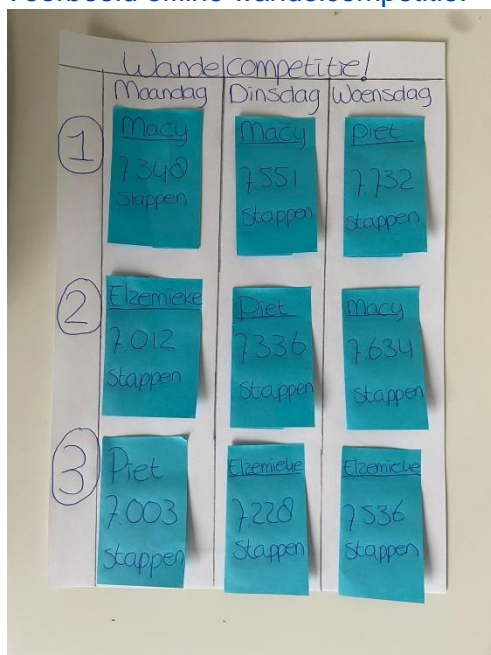 Wandelcompetitie!
Maandag Dinsdag Woensdag
1
Macy
7.348
Stappen
Macy
7.551
Stappen
Piet
7.732
Stappen
2
Elzemieke
7.012
Stappen
Piet
7.336
Stappen
Macy
7.634
Stappen
3
Piet
7.003
Stappen
Elzemieke
7.228
Stappen
Elzemieke
7.536
Stappen